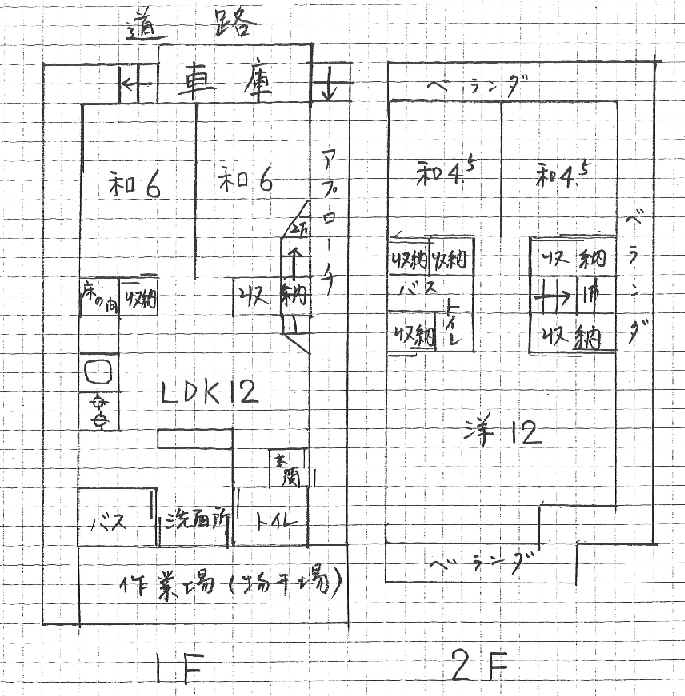 道路
車庫
ベランダ
和6
和6
アプローチ
和4.5
和4.5
ベランダ
2F
床の間
収納
収納
収納
収納
収納
バス
トイレ
1F
収納
収納
LDK12
洋12
玄関
バス
洗面所
トイレ
作業場(物干場)
ベランダ
1F
2F